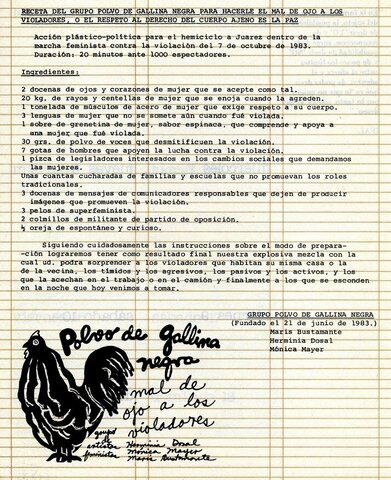 RECETA DEL GRUPO POLVO DE GALLINA NEGRA PARA HACERLE EL MAL DE OJO A LOS
VIOLADORES, O EL RESPETO AL DERECHO DEL CUERPO AJENO ES LA PAZ
Acción plástico-política para el hemiciclo a Juarez dentro de la
marcha feminista contra la violación del 7 de octubre de 1983.
Duración: 20 minutos ante 1000 espectadores.
Ingredientes:
2 docenas de ojos y corazones de mujer que se acepte como tal.
20 kg. de rayos y centellas de mujer que se enoja cuando la agreden.
1 tonelada de músculos de acero de mujer que exige respeto a su cuerpo.
3 lenguas de mujer que no se somete aún cuando fué violada.
1 sobre de grenetina de mujer, sabor espinaca, que comprende y apoya a
una mujer que fué violada.
30 grs. de polvo de voces que desmitifiquen la violación.
7 gotas de hombres que apoyen la lucha contra la violación.
1 pizca de legisladores interesados en los cambios sociales que demandamos
las mujeres.
Unas cuantas cucharadas de familias y escuelas que no promuevan los roles
tradicionales.
3 docenas de mensajes de comunicadores responsables que dejen de producir
imágenes que promuevan la violación.
3 pelos de superfeminista.
2 colmillos de militante de partido de oposición.
½ oreja de espontáneo y curioso.
Siguiendo cuidadosamente las instrucciones sobre el modo de prepara-
ción lograremos tener como resultado final nuestra explosiva mezcla con la
cual ud. podrá sorprender a los violadores que habitan su misma casa o la
de la vecina, los tímidos y los agresivos, los pasivos y los activos, y los
que la acechan en el trabajo o en el camión y finalmente a los que se esconden
en la noche que hoy venimos a tomar.
GRUPO POLVO DE GALLINA NEGRA
(Fundado el 21 de junio de 1983.)
Maris Bustamante
Herminia Dosal
Mónica Mayer
Polvo de gallina
negra
mal de
ojo a los
violadores
grupo
de
artistas
feministas
Herminia Dosal
Mónica Mayer
Maris Bustamante